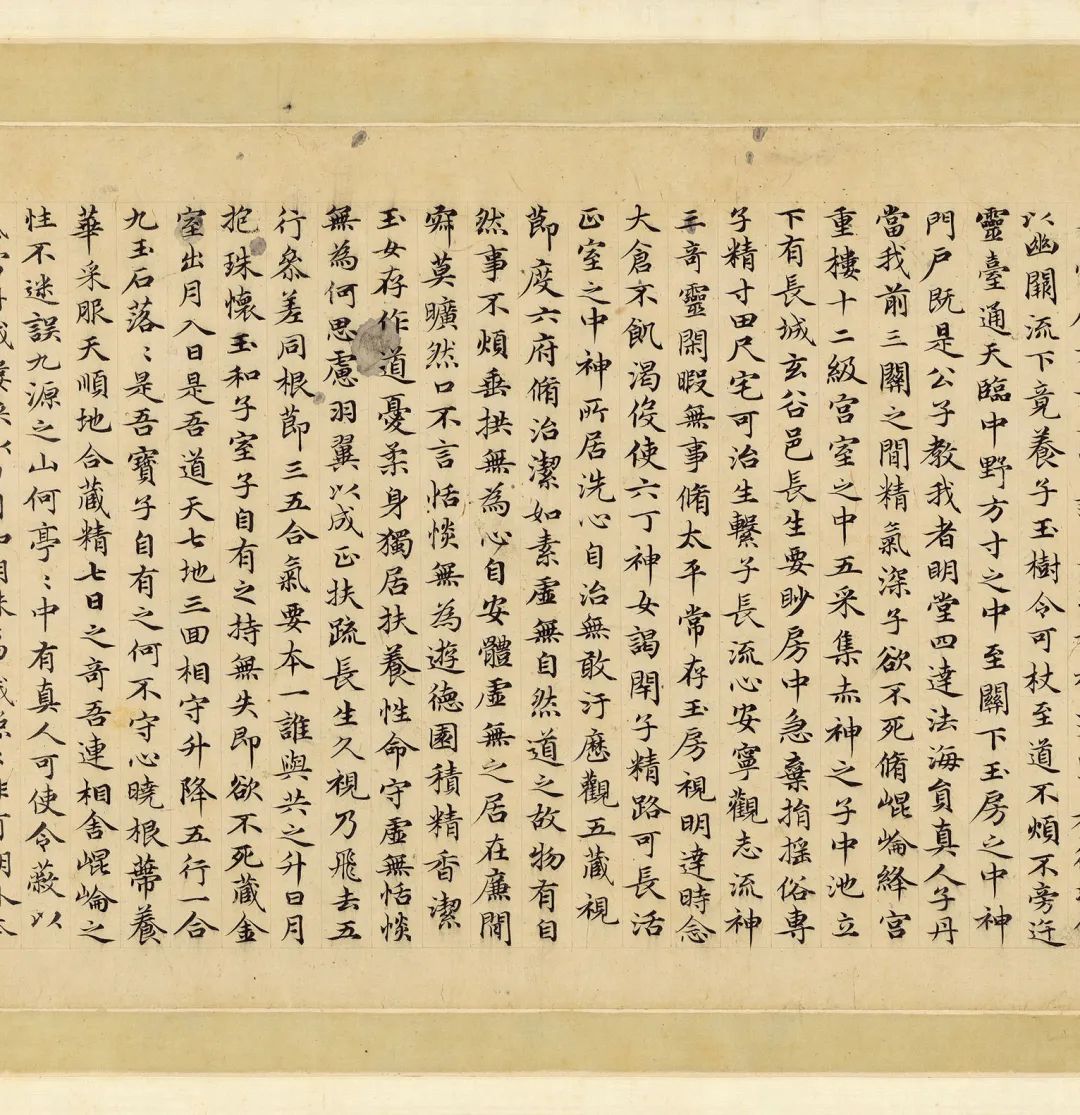 以幽關流下竟養子玉樹令可杖至道不煩不旁迕
靈臺通天臨中野方寸之中至關下玉房之中神
門戶既是公子教我者明堂四達法海負真人子丹
當我前三關之間精氣深子欲不死脩崐崘絳宮
重樓十二級宮室之中五采集赤神之子中池立
下有長城玄谷邑長生要眇房中急棄捐搖俗專
子精寸田尺宅可治生繫子長流心安寧觀志流神
三奇靈閑暇無事脩太平常存玉房視明達時念
大倉不飢渴伇使六丁神女謁閇子精路可長活
正室之中神所居洗心自治無敢汙歷觀五藏視
莭度六府脩治潔如素虛無自然道之故物有自
然事不煩垂拱無為心自安體虛無之居在廉閒
㝛莫曠然口不言恬惔無為遊德園積精香潔
玉女存作道憂柔身獨居扶養性命守虛無恬惔
無為何思慮羽翼以成正扶疏長生久視乃飛去五
行叅差同根莭三五合氣要本一誰與共之升日月
抱珠懷玉和子室子自有之持無失即欲不死藏金
室出月入日是吾道天七地三回相守升降五行一合
九玉石落〻是吾寶子自有之何不守心曉根蔕養
華采服天順地合藏精七日之奇吾連相舍崐崘之
性不迷誤九源之山何亭〻中有真人可使令蔽以